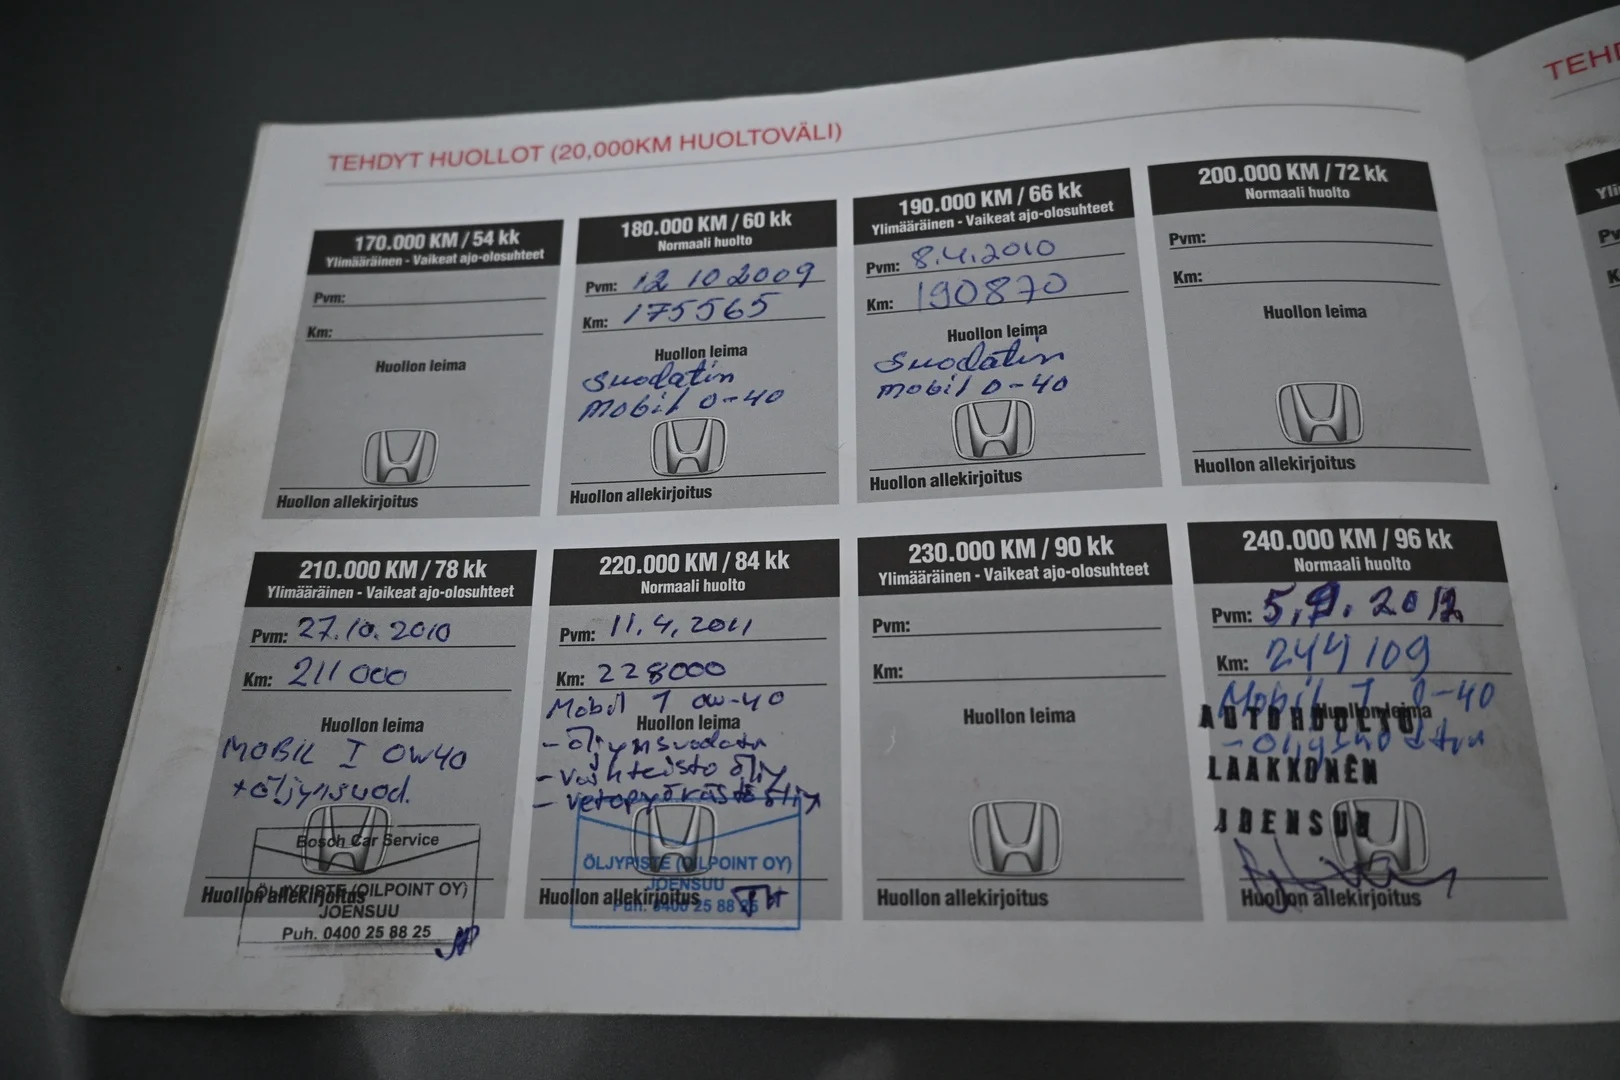 TEHDYT HUOLLOT (20,000KM HUOLTOVÄLI)
170.000 KM / 54 kk
Ylimääräinen - Vaikeat ajo-olosuhteet
Pvm:
Km:
Huollon leima
Huollon allekirjoitus
180.000 KM / 60 kk
Normaali huolto
Pvm: 12 10 2009
Km: 175565
Huollon leima
Suodatin
Mobil 0-40
Huollon allekirjoitus
190.000 KM / 66 kk
Ylimääräinen - Vaikeat ajo-olosuhteet
Pvm: 8.4.2010
Km: 190870
Huollon leima
Suodatin
Mobil 0-40
Huollon allekirjoitus
200.000 KM / 72 kk
Normaali huolto
Pvm:
Km:
Huollon leima
Huollon allekirjoitus
210.000 KM / 78 kk
Ylimääräinen - Vaikeat ajo-olosuhteet
Pvm: 27.10.2010
Km: 211 000
Huollon leima
MOBIL I 0W40
+ öljynsuod.
Bosch Car Service
Huollon allekirjoitus
ÖLJYPISTE (OILPOINT OY)
JOENSUU
Puh. 0400 25 88 25
220.000 KM / 84 kk
Normaali huolto
Pvm: 11.4.2011
Km: 228000
Mobil 1 0w-40
Huollon leima
- öljynsuodatin
- vaihteisto öljy
- vetopyörästö öljy
ÖLJYPISTE (OILPOINT OY)
JOENSUU
Huollon allekirjoitus
Puh. 0400 25 88 25
230.000 KM / 90 kk
Ylimääräinen - Vaikeat ajo-olosuhteet
Pvm:
Km:
Huollon leima
Huollon allekirjoitus
240.000 KM / 96 kk
Normaali huolto
Pvm: 5. 2012
Km: 244109
Mobil 1 0-40
Huollon leima
AUTOHUOLTO
LAAKKONEN
JOENSUU
Huollon allekirjoitus
TEHD
Yli
Pv
K